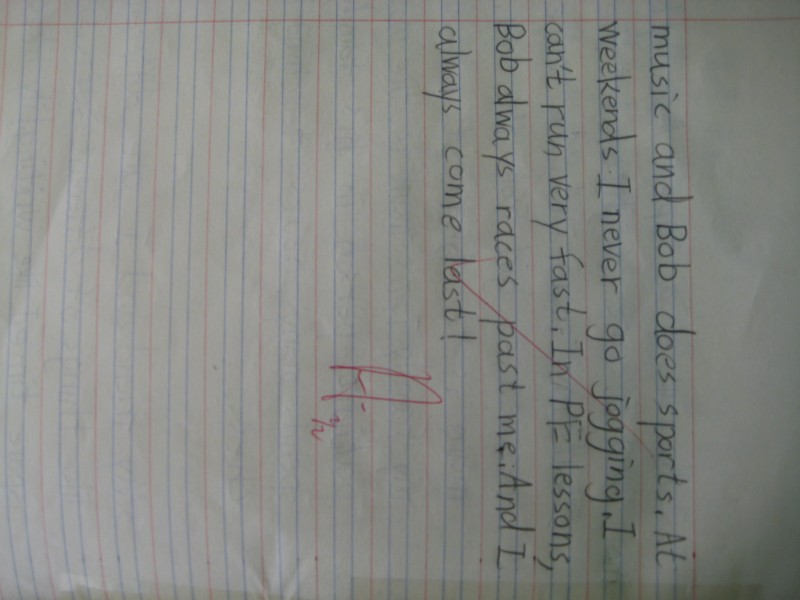 music and Bob does sports. At
weekends. I never go jogging. I
can't run very fast. In PE lessons,
Bob always races past me. And I
always come last!